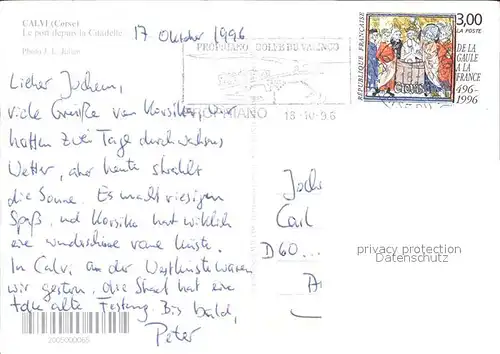 CALVI (Corse)
Le port depuis la Citadelle
Photo J. L. Julien
17 Oktober 1996
PROPRIANO GOLFE DU VALINCO
PROPRIANO 18-10-96
RÉPUBLIQUE FRANÇAISE
3,00
LA POSTE
DE LA
GAULE
A LA
FRANCE
496-
1996
Lieber Jochem,
viele Grüße von Korsika. Wir
hatten zwei Tage durchwachsenes
Wetter, aber heute strahlt
die Sonne. Es macht riesigen
Spaß und Korsika hat wirklich
eine wunderschöne Küste.
In Calvi an der Westküste waren
wir gestern. Die Stadt hat eine
tolle alte Festung. Bis bald,
Peter
Joche
Carl
D 60...
privacy protection
Datenschutz
2005000065